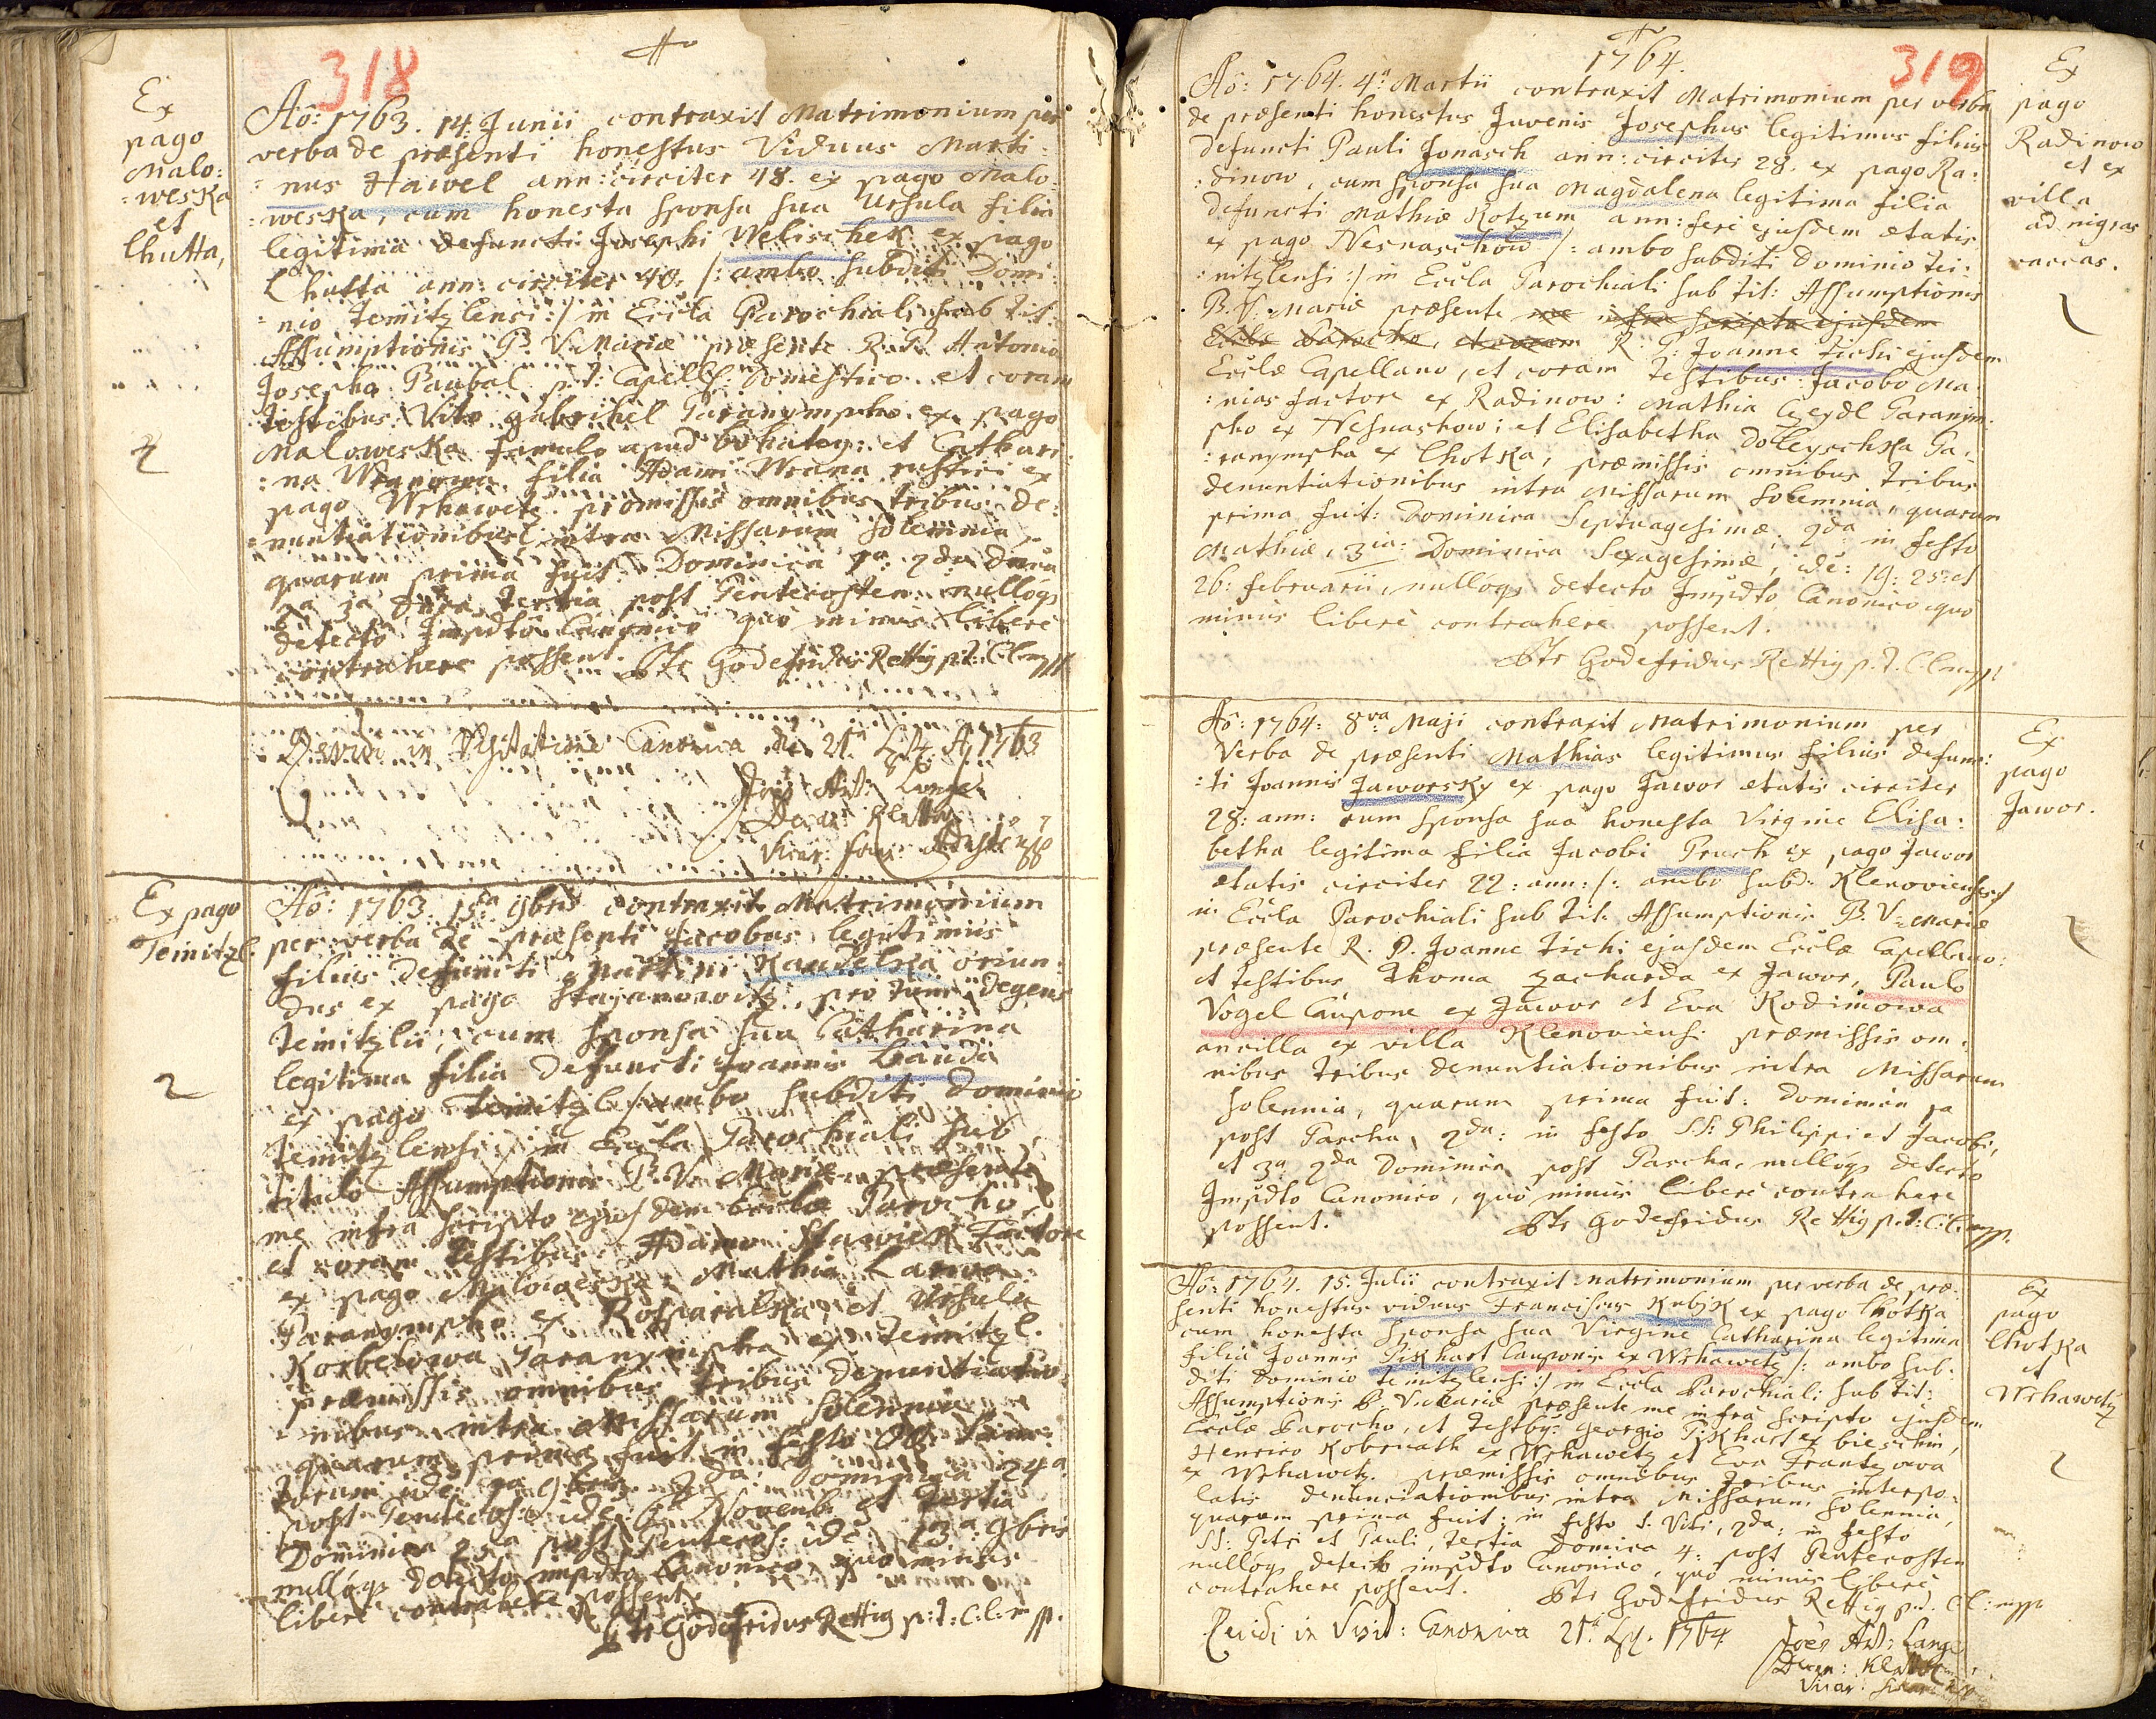 318
Ex
pago
Malo:
=weska
et
Lhutta,
Aõ: 1763. 14. Junii contraxit Matrimonium per
verba de præsenti honestus Viduus Marti:
=nus Hawel ann: circiter 48. ex pago Malo:
=weska, cum honesta sponsa sua Ursula filia
legitima defuncti Josephi Welischek ex pago
Lhutta ann: circiter 40. /: ambo subditi Domi:
=nio Teinitzlensi :/ in Eccla Parochiali sub tit:
Assumptionis B. V. Mariæ præsente R. P. Antonio
Josepho Paubal p.t: Capell: Domestico et coram
testibus: Vito gabrihel Paranympho ex pago
Maloweska famulo apud bohaty: et Cathari
:na Wranowa filia Adami Wrana rustici ex
pago Wrhawetz. præmissis omnibus tribus de:
=nuntiationibus intra Missarum solemnia,
quarum prima fuit Dominica 1ma 2da Dnca
2a 3a Dnca tertia post Pentecosten. nullóqs
detecto Impdto Canonico quo minus liberè
contrahere possent.
Ptr Godefridus Rettig p.t: C.C. mpp
2
Revidi in Visitatione Canonica die 21 A. 1763
Joes Ant: Lange
Decan: Klatto
Vicar: For:
Ex pago
Teinitzl:
Aõ: 1763. 15ta 9bris contraxit Matrimonium
per verba de præsenti Jacobus legitimus
filius defuncti Martini Kaudelka oriun:
dus ex pago Stajanowitz, pro tunc degens
Teinitzlii, cum sponsa sua Catharina
legitima filia defuncti Joannis Bauda
ex pago Teinitzl /: ambo subditi Dominio
Teinitzlensi :/ in Eccla Parochiali sub
titulo Assumptionis B. V. Mariæ præsente
me infra scripto ejusdem Ecclæ Parocho,
et coram testibus Adamo Stawick Factore
ex pago Maloweska, Mathia Larwa
Paranympho ex Rosparalka, et Ursula
Korbelowa Paranympha ex Teinitzl.
præmissis omnibus tribus denuntiatio:
nibus intra Missarum Solennia
quarum prima fuit in festo OO. Sanc:
torum ide: 1ma 9bris 2da: Dominica 24a
post Pentecos: ide: 6. Novemb: et tertia
Dominica 25ta post Pentecos: ide: 13a 9bris
nullóqs detecto impdto Canonico quo minus
liberè contrahere possent.
Ptr Godefridus Rettig p:t: C:C: mpp.
2
319
1764.
Ex
pago
Radinow
et ex
villa
ad nigras
vaccas.
Aõ: 1764. 4a Martii contraxit Matrimonium per verba
de præsenti honestus Juvenis Josephus legitimus filius
defuncti Pauli Jonasch ann: circiter 28. ex pago Ra:
:dinow, cum sponsa sua Magdalena legitima filia
defuncti Mathiæ Kotzum ann: ferè ejusdem ætatis
ex pago Nesnaschow /: ambo subditi Dominio Tei:
:nitzlensi :/ in Eccla Parochiali sub tit: Assumptionis
B. V. Mariæ præsente me infra scripto ejusdem
Ecclæ Parocho, et coram R. P. Joanne Tichi ejusdem
Ecclæ Capellano, et coram testibus: Jacobo Ma:
:nias factore ex Radinow: Mathia Czeydl Paranym:
pho ex Nesnashow: et Elisabetha Dolleyschka Pa:
:ranympha ex Lhotka, præmissis omnibus tribus
denuntiationibus intra Missarum solemnia, quarum
prima fuit: Dominica Septuagesimæ, 2da in festo
Mathiæ, 3tia: Dominica Sexagesimæ, ide: 19: 25: et
26: februarii, nullóqs detecto Impdto Canonico quo
minus liberè contrahere possent.
Ptr Godefridus Rettig p.t. C.C. mpp
Ex
pago
Jawor.
Aõ: 1764: 8va Maji contraxit Matrimonium per
Verba de præsenti Mathias legitimus filius defunc:
:ti Joannis Jaworsky ex pago Jawor ætatis circiter
28: ann: cum sponsa sua honesta Virgine Elisa:
betha legitima filia Jacobi Pruch ex pago Jawor
ætatis circiter 22: ann: /: ambo subd: Klenovienses :/
in Eccla Parochiali sub tit: Assumptionis B. V. Mariæ
præsente R. P. Joanne Tichi ejusdem Ecclæ Capellano:
et testibus Thoma Zacharda ex Jawor, Paulo
Vogel Caupone ex Jawor et Eva Rodimowa
ancilla ex villa Klenoviensi præmissis om:
nibus tribus denuntiationibus intra Missarum
solennia, quarum prima fuit: Dominica 1a
post Pascha, 2da: in festo SS: Philippi et Jacobi,
et 3a 2da Dominica post Pascha, nullóqs detecto
Impdto Canonico, quò minùs liberè contrahere
possent.
Ptr Godefridus Rettig p.t: C:C: mpp.
2
Ex
pago
Lhotka
et
Wrhawetz
Aõ: 1764. 15: Julii contraxit Matrimonium per verba de præ:
senti honestus viduus Franciscus Kubjk ex pago Lhotka
cum honesta sponsa sua Virgine Catharina legitima
filia Joannis Pikhart Cauponis ex Wrhawetz /: ambo sub:
diti Dominio Teinitzlensi :/ in Eccla Parochiali sub tit:
Assumptionis B. V. Mariæ præsente me infra scripto ejusdem
Ecclæ Parocho, et testbs: Georgio Pikhart ex bieschin,
Henrico Kobrnath ex Wrhawetz et Eva Frantzowa
ex Wrhawetz. præmissis omnibus tribus interpo:
latis denunciationibus intra Missarum solennia,
quarum prima fuit: in festo S. Viti, 2da: in festo
SS: Petri et Pauli, tertia Domica 4: post Pentecosten
nullóqs detecto impdto Canonico, quò minùs liberè
contrahere possent.
Ptr Godefridus Rettig p.t. C.C: mpp
2
Revidi in Visit: Canonica 21 1764
Joes Ant: Lange
Decan: Klatto
Vicar: